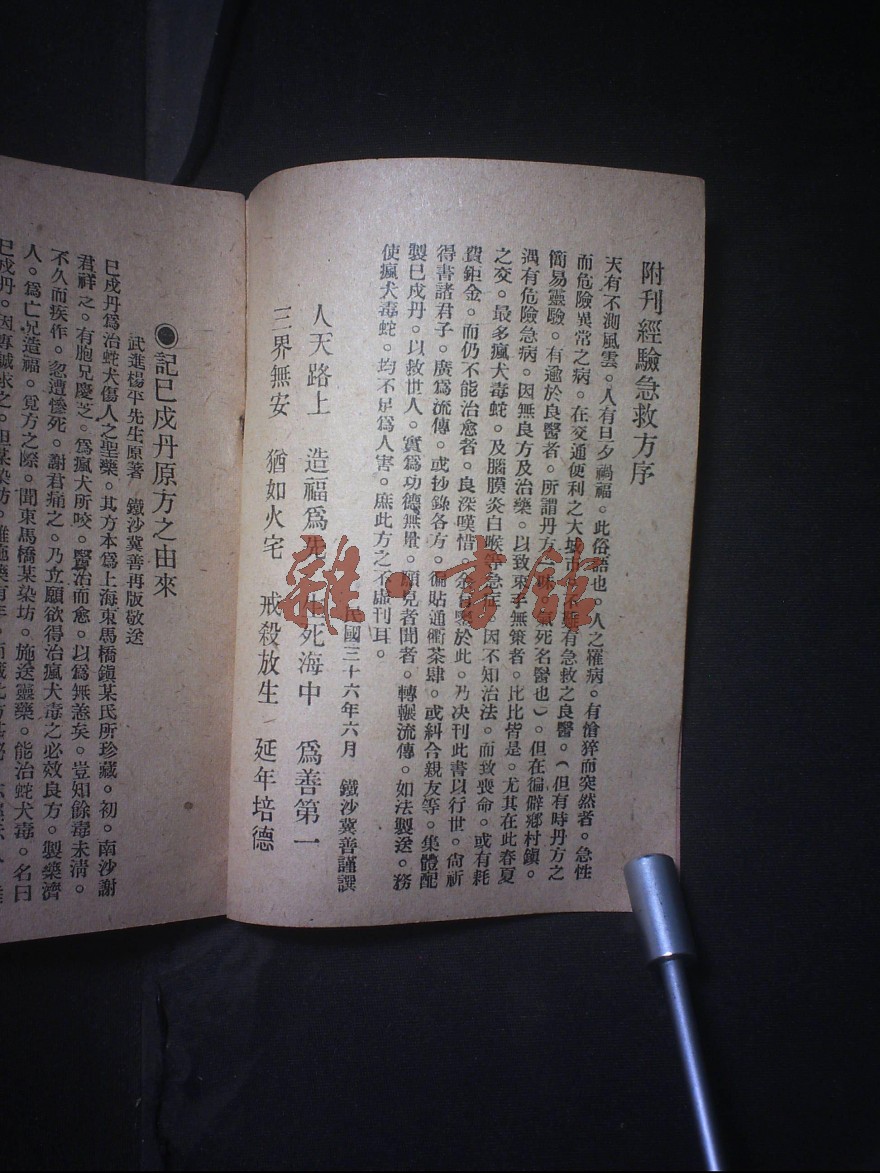 附刊經驗急救方序
天有不測風雲。人有旦夕禍福。此俗語也。人之罹病。有愴猝而突然者。急性
而危險異常之病。在交通便利之大城市。不難有急救之良醫。(但有時丹方之
簡易靈驗。有逾於良醫者。所謂丹方一味。氣死名醫也)。但在徧僻鄉村鎮。
遇有危險急病。因無良方及治藥。以致束手無策者。比比皆是。尤其在此春夏
之交。最多瘋犬毒蛇。及腦膜炎白喉等急症。因不知治法。而致喪命。或有耗
費鉅金。而仍不能治愈者。良深嘆惜。余有鑒於此。乃決刊此書以行世。尙祈
得書諸君子。廣爲流傳。或抄錄各方。徧貼通衢茶肆。或糾合親友等。集體配
製巳戌丹。以救世人。實爲功德無量。願見者聞者。轉輾流傳。如法製送。務
使瘋犬毒蛇。均不足爲人害。庶此方之不虛刊耳。
民國三十六年六月 鐵沙冀善謹譔
人天路上 造福爲先 生死海中 爲善第一
三界無安 猶如火宅 戒殺放生 延年培德
●記巳戌丹原方之由來
武進楊平先生原著 鐵沙冀善再版敬送
巳戌丹爲治蛇犬傷人之聖藥。其方本爲上海東馬橋鎮某氏所珍藏。初。南沙謝
君祥之。有胞兄慶芝。爲瘋犬所咬。醫治而愈。以爲無恙矣。豈知餘毒未淸。
不久而疾作。忽遭慘死。謝君痛之。乃立願欲得治瘋犬毒之必效良方。製藥濟
人。爲亡兄造福。覓方之際。聞東馬橋某染坊。施送靈藥。能治蛇犬毒。名曰
巳戌丹。因專誠求之。但某染坊。雖施藥有年。而
雜·書館